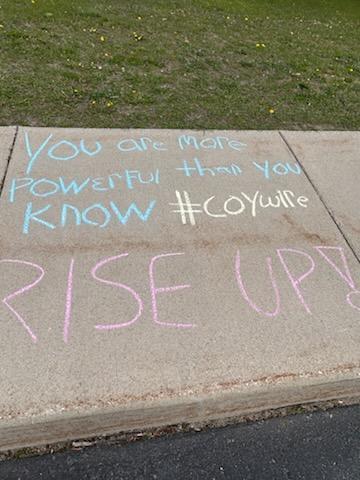 You are more
Powerful than you
Know #coywire
RISE UP!